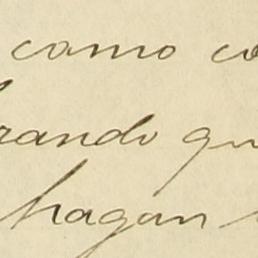 como co
rando qu
hagan